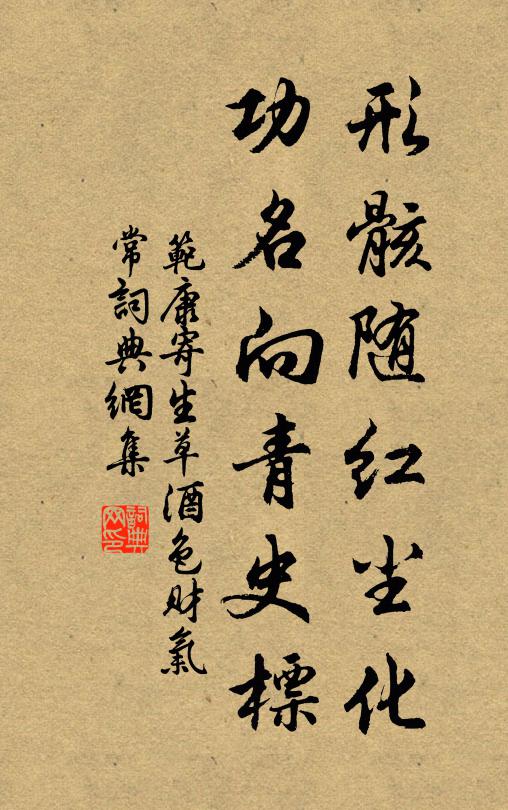 形骸随红尘化
功名向青史標
範康寄生草酒色財氣
常詞典網集
詞典
网印